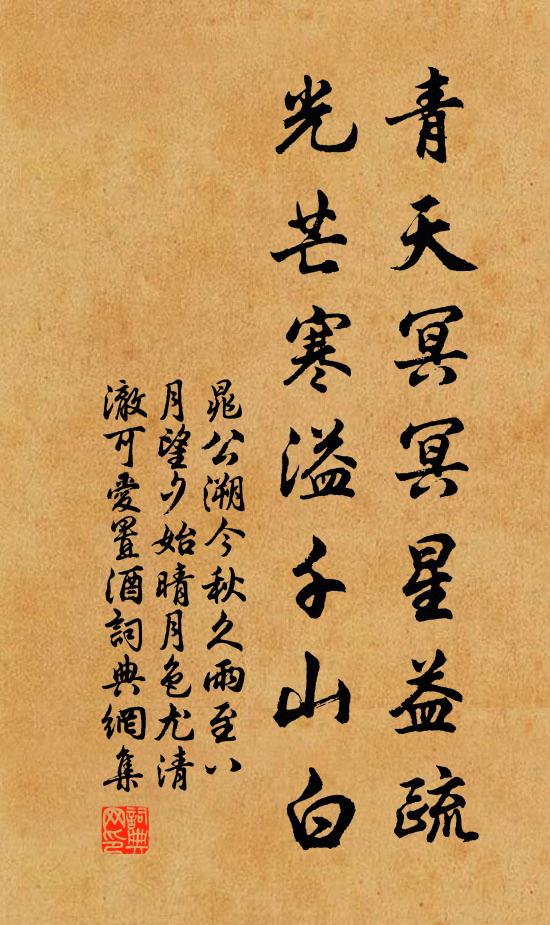 青天冥冥星益疏
光芒寒溢千山白
晁公溯今秋久雨至八
月望夕始晴月色尤清
澈可愛置酒詞典網集
詞典
网印